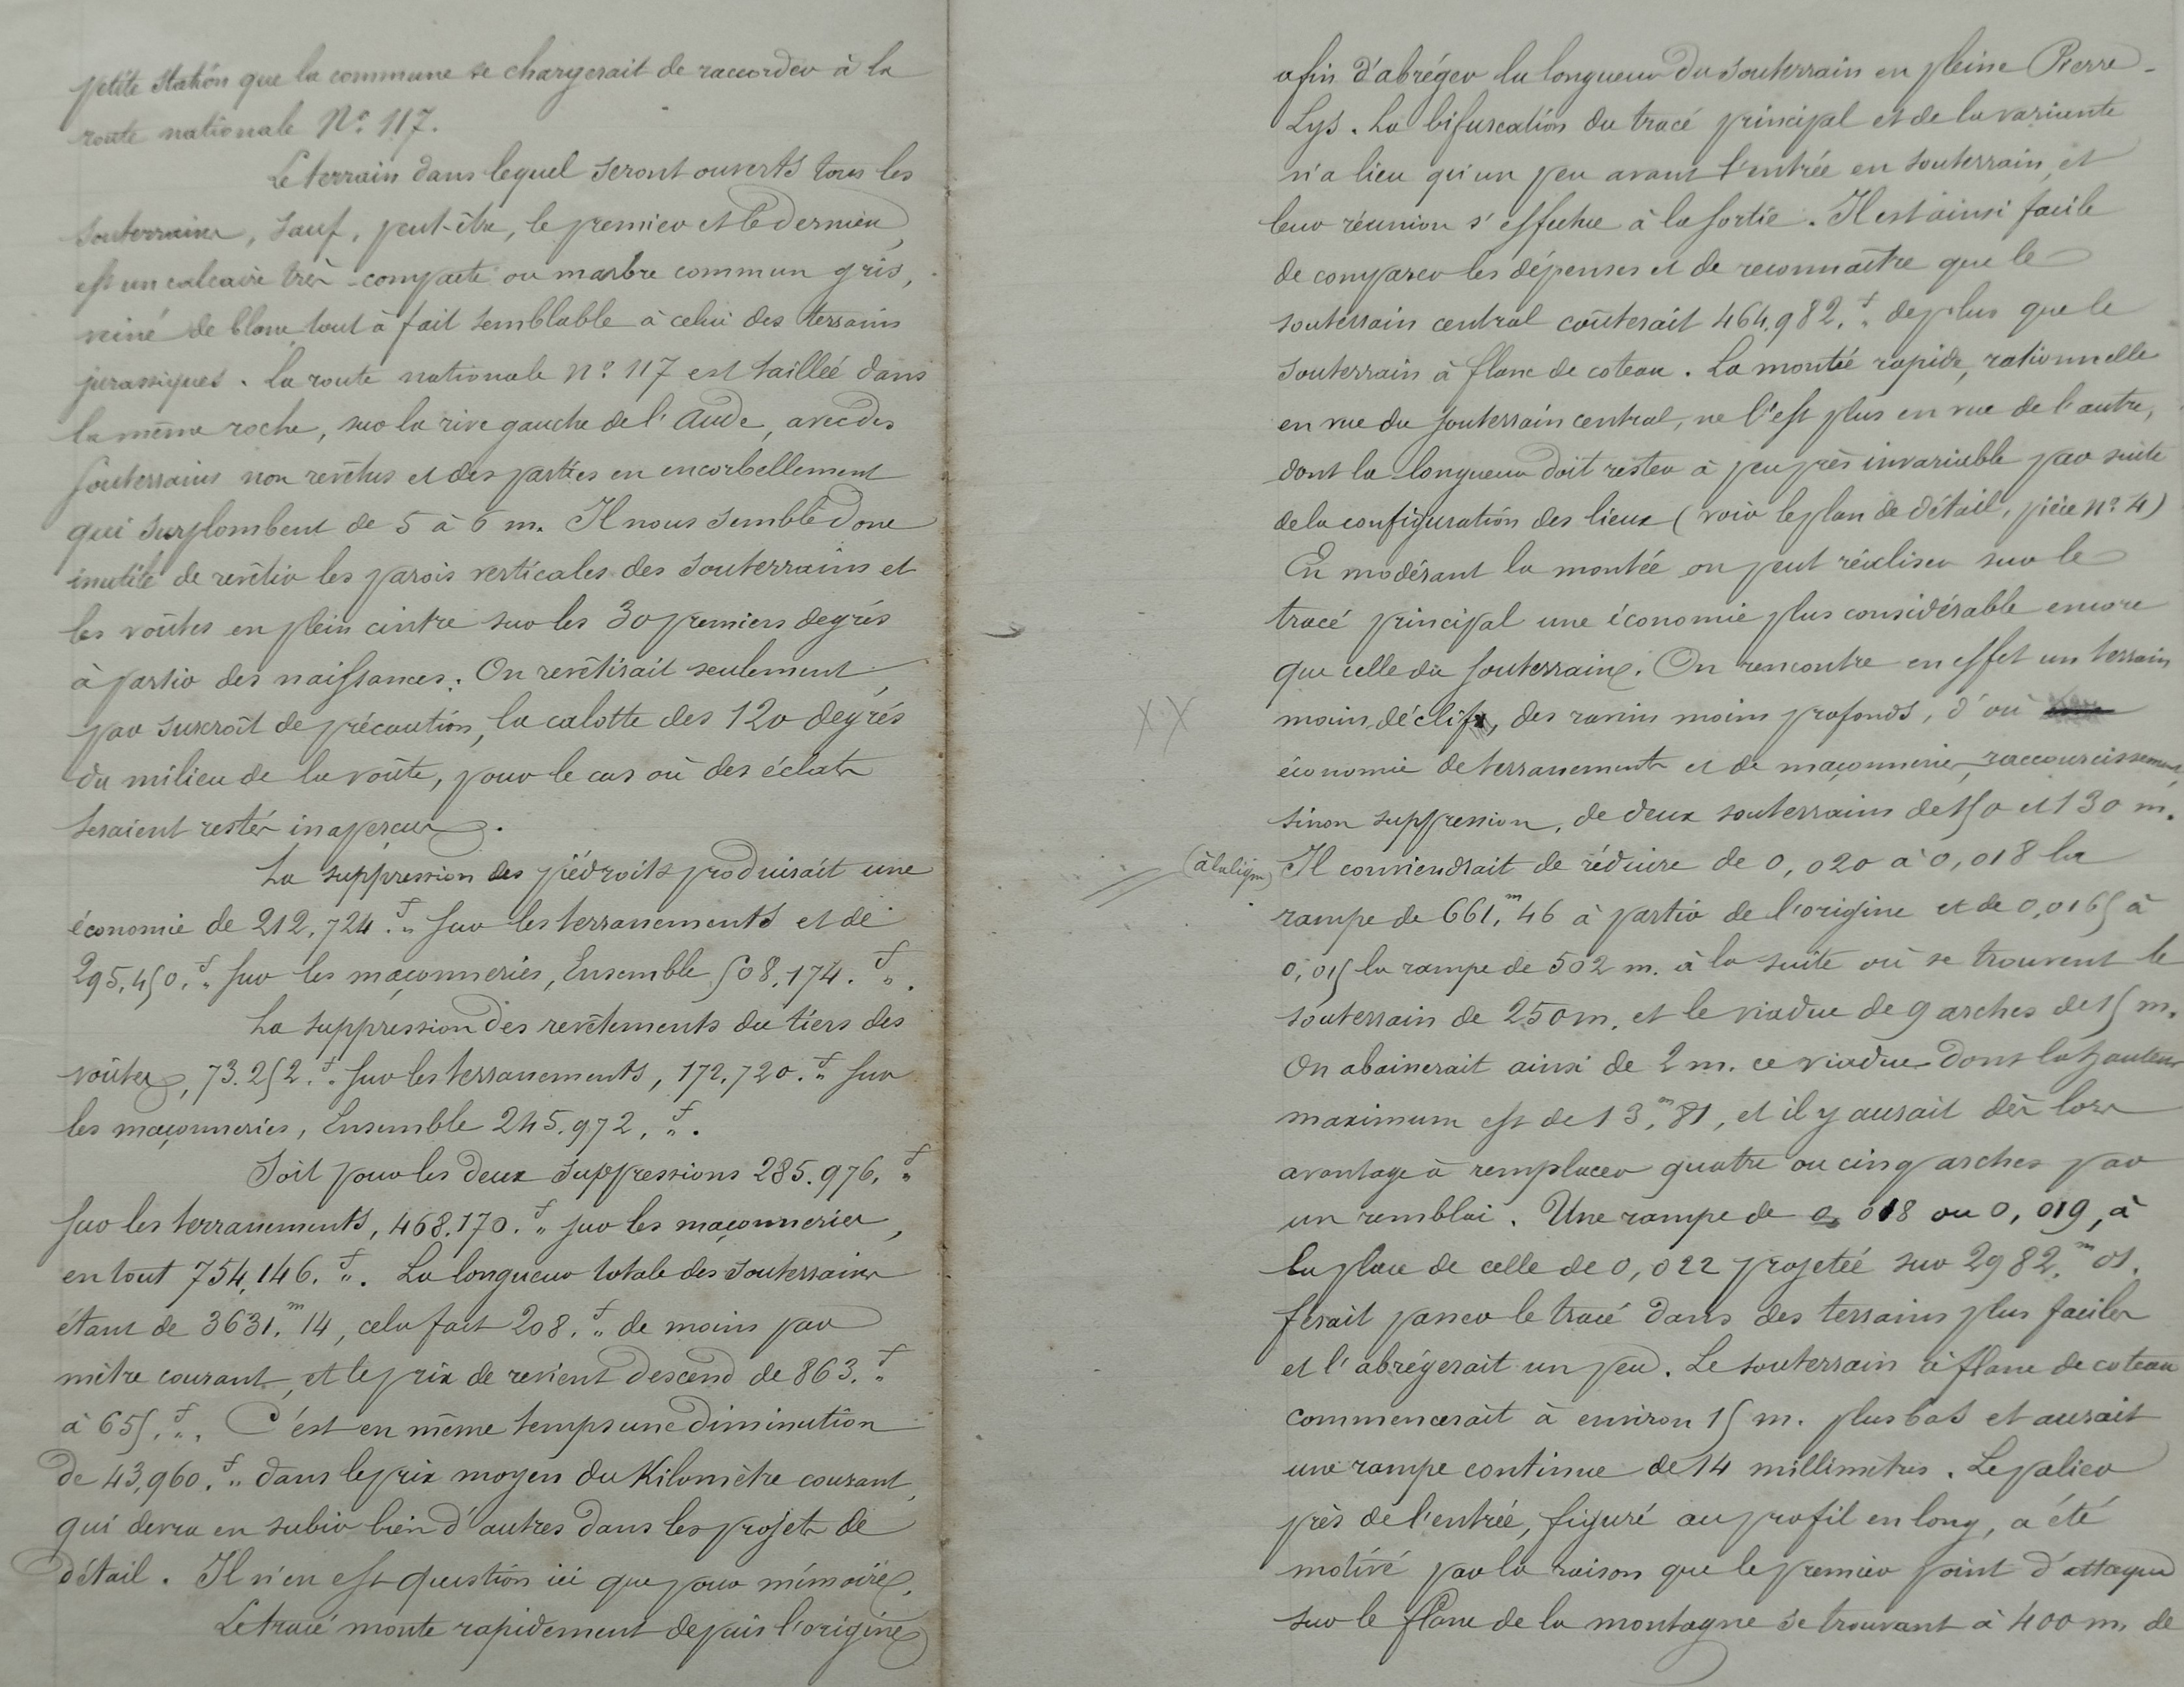 petite station que la commune se chargerait de raccorder à la
route nationale N° 117.
Le terrain dans lequel seront ouverts tous les
souterrains, sauf, peut-être, le premier et le dernier,
est un calcaire très-compacte ou marbre commun gris,
veiné de blanc tout à fait semblable à celui des terrains
jurassiques. La route nationale n° 117 est taillée dans
la même roche, sur la rive gauche de l'Aude, avec des
souterrains non revêtus et des parties en encorbellement
qui surplombent de 5 à 6 m. Il nous semble donc
inutile de revêtir les parois verticales des souterrains et
les voûtes en plein cintre sur les 30 premiers degrés
à partir des naissances. On revêtirait seulement,
par surcroît de précaution, la calotte des 120 degrés
du milieu de la voûte, pour le cas où des éclats
seraient restés inaperçus.
La suppression des piédroits produirait une
économie de 212,724.f " sur les terrassements et de
295.450.f " sur les maçonneries, Ensemble 508.174.f ".
La suppression des revêtements du tiers des
voûtes, 73.252.f " sur les terrassements, 172.720.f " sur
les maçonneries, Ensemble 245.972.f ".
Soit pour les deux suppressions 285.976.f "
sur les terrassements, 468.170.f " sur les maçonneries,
en tout 754,146.f ". La longueur totale des souterrains
étant de 3631.m 14, cela fait 208.f " de moins par
mètre courant, et le prix de revient descend de 863.f "
à 655.f ". C'est en même temps une diminution
de 43,960.f " dans le prix moyen du Kilomètre courant,
qui devra en subir bien d'autres dans les projets de
détail. Il n'en est question ici que pour mémoire.
Le tracé monte rapidement depuis l'origine
afin d'abréger la longueur du souterrain en pleine Pierre-
Lys. La bifurcation du tracé principal et de la variante
n'a lieu qu'un peu avant l'entrée en souterrain, et
leur réunion s'effectue à la sortie. Il est ainsi facile
de comparer les dépenses et de reconnaître que le
souterrain central coûterait 464.982.f " de plus que le
souterrain à flanc de coteau. La montée rapide, rationnelle
en vue du souterrain central, ne l'est plus en vue de l'autre,
dont la longueur doit rester à peu près invariable par suite
de la configuration des lieux (voir le plan de détail, pièce n° 4)
En modérant la montée on peut réaliser sur le
tracé principal une économie plus considérable encore
que celle du souterrain. On rencontre en effet un terrain
moins déclif, des ravins moins profonds, d'où
XX
économie de terrassements et de maçonneries, raccourcissement,
sinon suppression, de deux souterrains de 150 et 130 m.
(à la ligne) Il conviendrait de réduire de 0,020 à 0,018 la
rampe de 661,m 46 à partir de l'origine et de 0,0165 à
0,015 la rampe de 502 m. à la suite où se trouvent le
souterrain de 250 m. et le viaduc de 9 arches de 15 m.
On abaisserait ainsi de 2 m. ce viaduc dont la hauteur
maximum est de 13,m 81, et il y aurait dès lors
avantage à remplacer quatre ou cinq arches par
un remblai. Une rampe de 0,018 ou 0,019, à
la place de celle de 0,022 projetée sur 2982.m 01.
ferait passer le tracé dans des terrains plus faciles
et l'abrégerait un peu. Le souterrain à flanc de coteau
commencerait à environ 15 m. plus bas et aurait
une rampe continue de 14 millimètres. Le palier
près de l'entrée, figuré au profil en long, a été
motivé par la raison que le premier point d'attaque
sur le flanc de la montagne se trouvant à 400 m. de